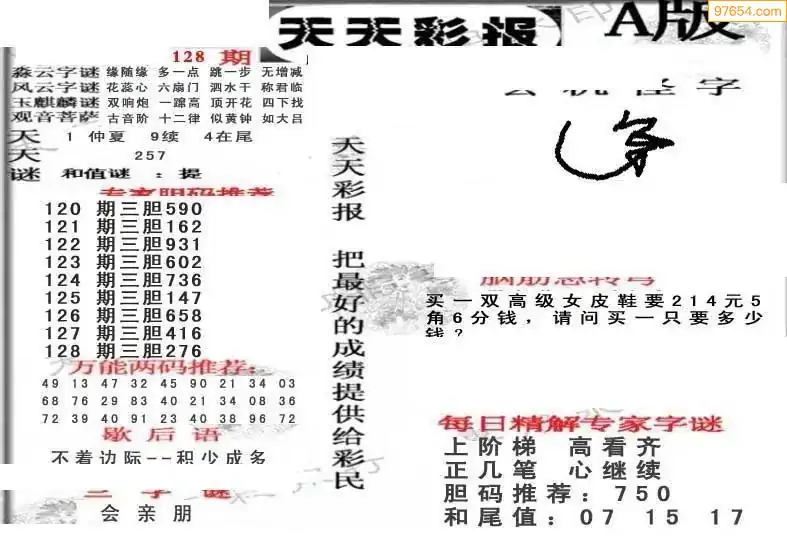 97654.com
天天彩报 A版
128 期
淼云字谜 缘随缘 多一点 跳一步 无增减
风云字谜 花蕊心 六扇门 泗水干 称君临
玉麒麟谜 双响炮 一蹿高 顶开花 四下找
观音菩萨 古音阶 十二律 似黄钟 如大吕
天 1 仲夏 9续 4在尾
天 257
谜 和值谜 : 提
专家胆码推荐
120 期三胆590
121 期三胆162
122 期三胆931
123 期三胆602
124 期三胆736
125 期三胆147
126 期三胆658
127 期三胆416
128 期三胆276
万能两码推荐:
49 13 47 32 45 90 21 34 03
68 76 29 83 40 21 34 08 36
72 39 40 91 23 40 38 96 72
歇后语
不着边际--积少成多
三字谜
会亲朋
天天彩报 把最好的成绩提供给彩民
玄机怪字
脑筋急转弯
买一双高级女皮鞋要214元5
角6分钱，请问买一只要多少
钱？
每日精解专家字谜
上阶梯 高看齐
正几笔 心继续
胆码推荐: 750
和尾值: 07 15 17